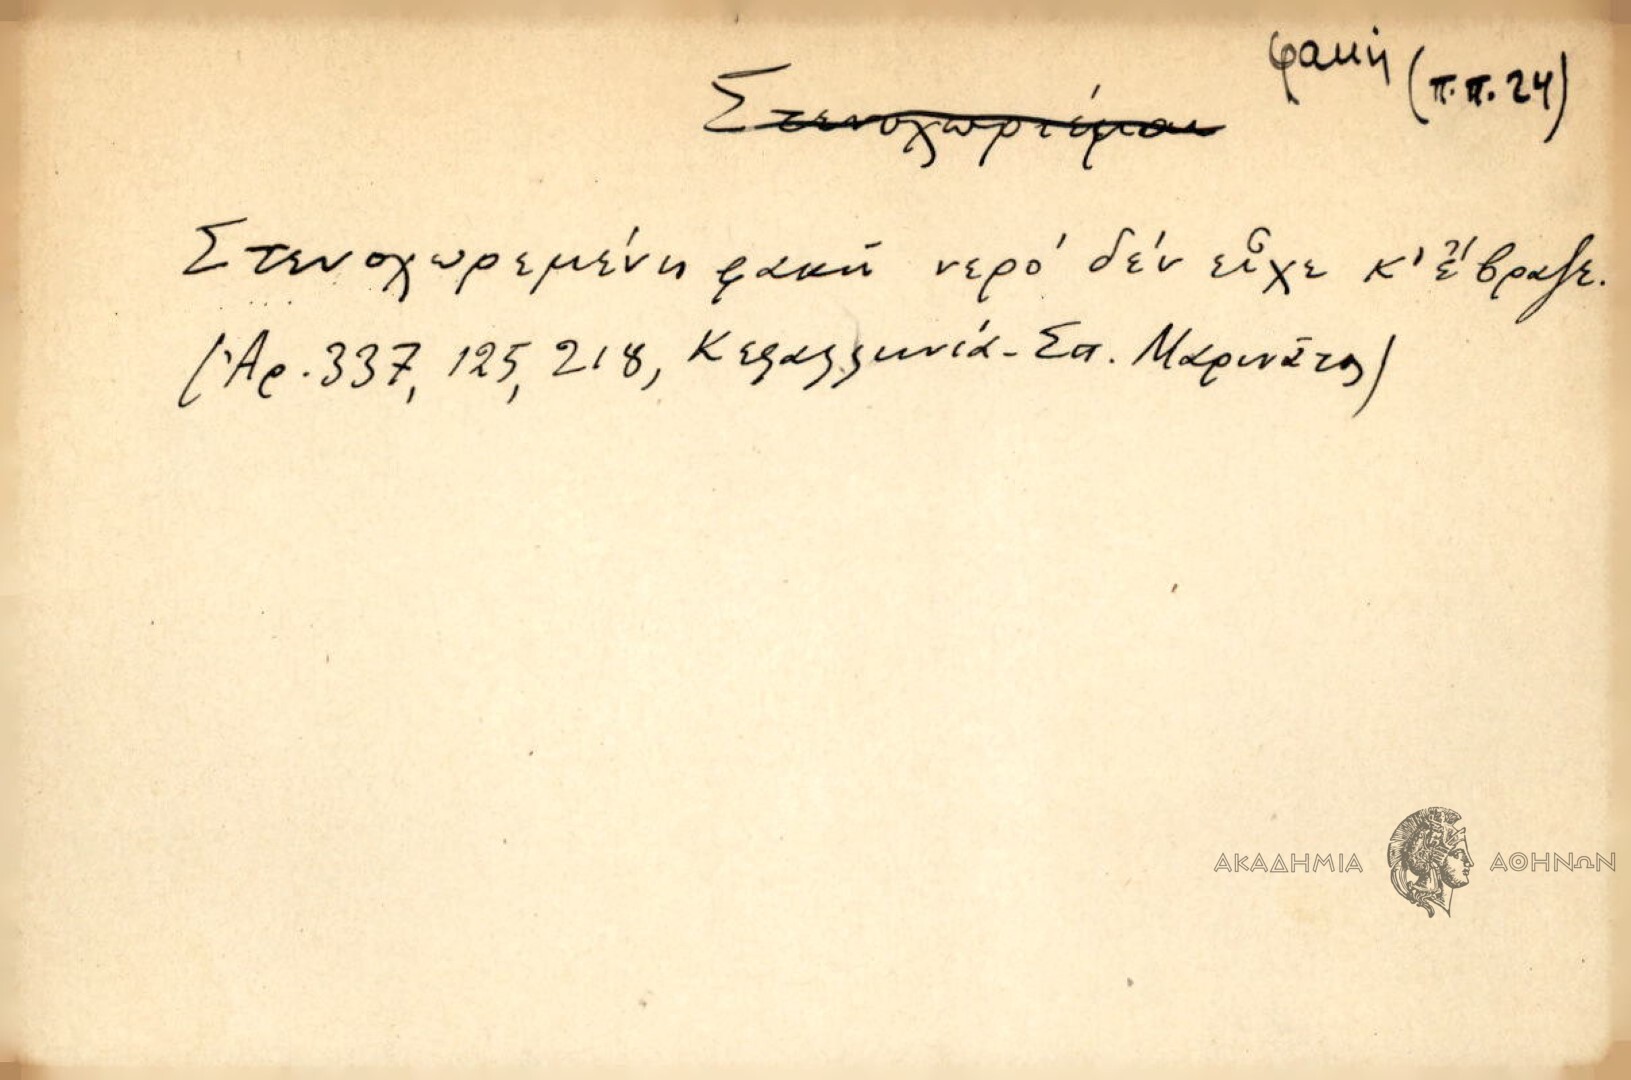 φακή (π.π. 24)
Στενοχωριέμαι
Στενοχωρεμένη φακή νερό δέν εἶχε κ' ἔβραζε.
(Ἀρ. 337, 125, 218, Κεφαλληνιά - Σπ. Μαρινᾶτος)
ΑΚΑΔΗΜΙΑ ΑΘΗΝΩΝ